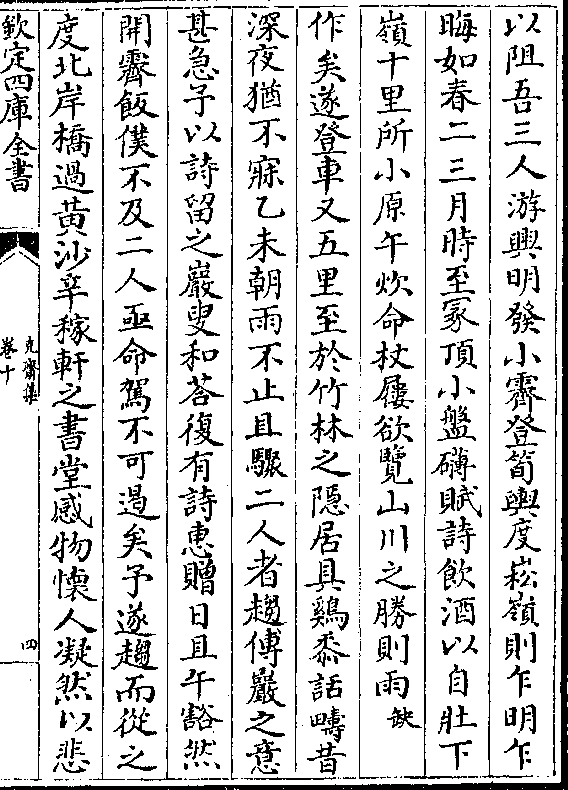 以阻吾三人游興明發小霽登筍輿度崧嶺則乍明乍
晦如春二三月時至冢頂小盤礴賦詩飲酒以自壯下
嶺十里所小原午炊命杖屨欲覽山川之勝則雨缺
作矣遂登車又五里至於竹林之隠居具鷄黍話疇昔
深夜猶不寐乙未朝雨不止且驟二人者趨傅巖之意
甚急予以詩留之巖叟和荅復有詩惠贈日且午豁然
開霽飯僕不及二人亟命駕不可遏矣予遂趨而從之
度北岸橋過黃沙辛稼軒之書堂感物懷人凝然以悲
欽定四庫全書
克齋集
卷十
四